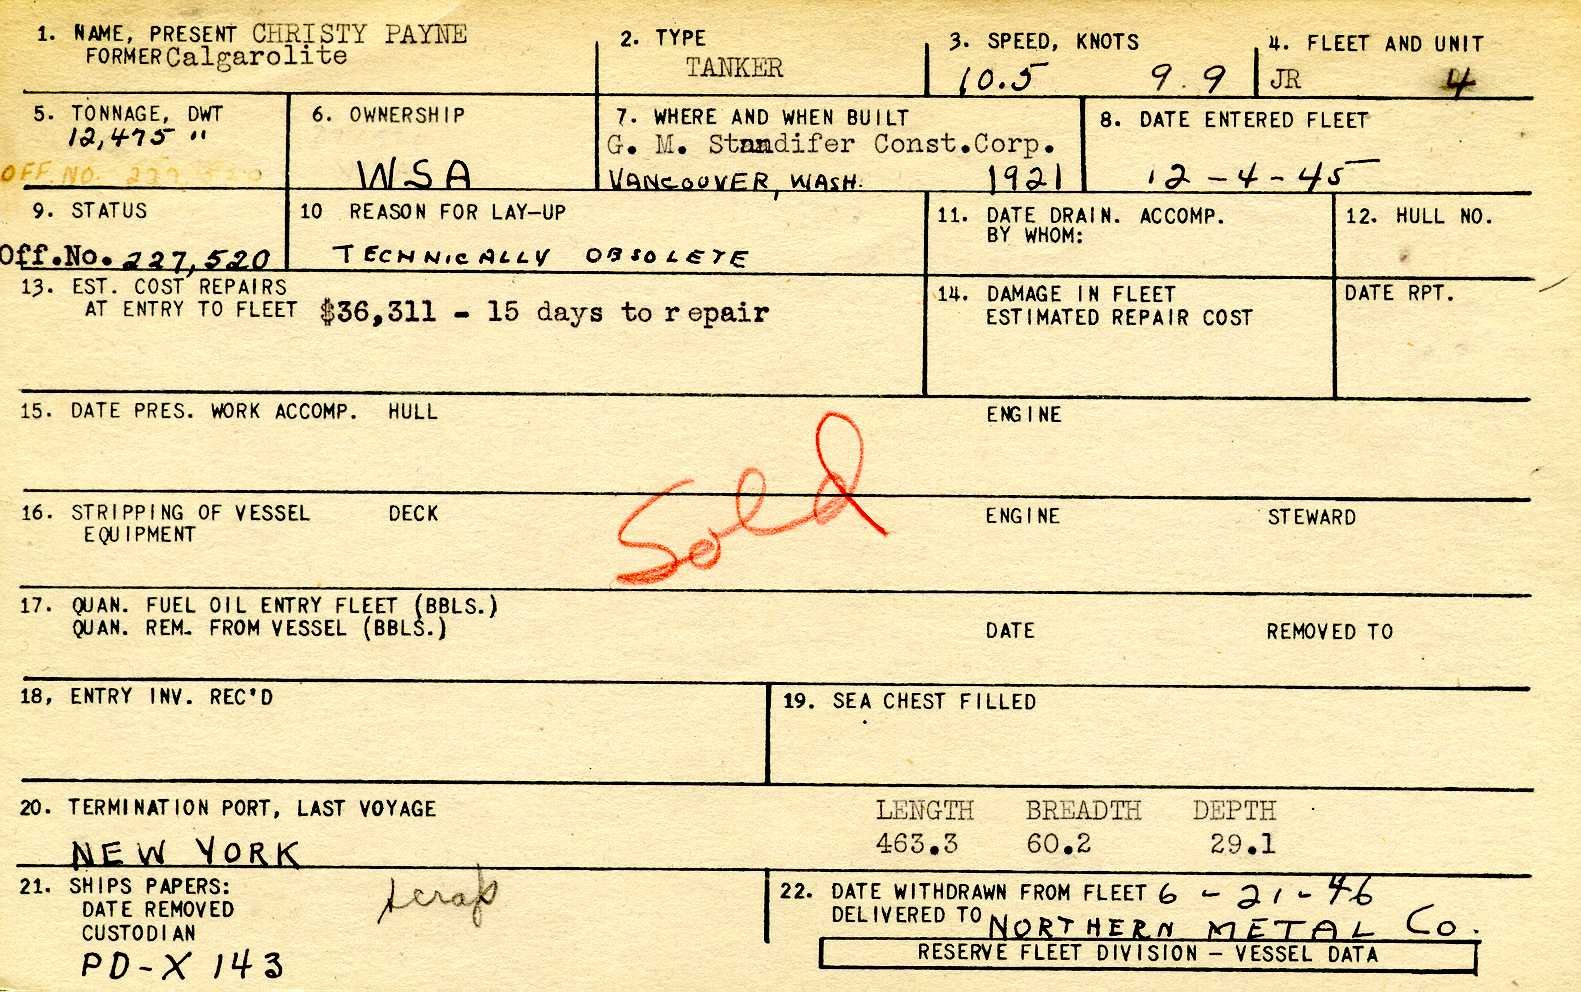 1. NAME, PRESENT CHRISTY PAYNE
FORMER Calgarolite
2. TYPE
TANKER
3. SPEED, KNOTS
10.5 9.9
4. FLEET AND UNIT
JR 4
5. TONNAGE, DWT
12,475 "
OFF. NO. 227,520
6. OWNERSHIP
WSA
7. WHERE AND WHEN BUILT
G. M. Standifer Const.Corp.
VANCOUVER, WASH. 1921
8. DATE ENTERED FLEET
12-4-45
9. STATUS
Off.No. 227,520
10 REASON FOR LAY-UP
TECHNICALLY OBSOLETE
11. DATE DRAIN. ACCOMP.
BY WHOM:
12. HULL NO.
13. EST. COST REPAIRS
AT ENTRY TO FLEET $36,311 - 15 days to repair
14. DAMAGE IN FLEET
ESTIMATED REPAIR COST
DATE RPT.
15. DATE PRES. WORK ACCOMP. HULL ENGINE
Sold
16. STRIPPING OF VESSEL DECK ENGINE STEWARD
EQUIPMENT
17. QUAN. FUEL OIL ENTRY FLEET (BBLS.)
QUAN. REM. FROM VESSEL (BBLS.) DATE REMOVED TO
18, ENTRY INV. REC'D
19. SEA CHEST FILLED
20. TERMINATION PORT, LAST VOYAGE
NEW YORK
LENGTH BREADTH DEPTH
463.3 60.2 29.1
21. SHIPS PAPERS:
DATE REMOVED
CUSTODIAN
scrap
PD-X 143
22. DATE WITHDRAWN FROM FLEET 6-21-46
DELIVERED TO NORTHERN METAL Co.
RESERVE FLEET DIVISION - VESSEL DATA